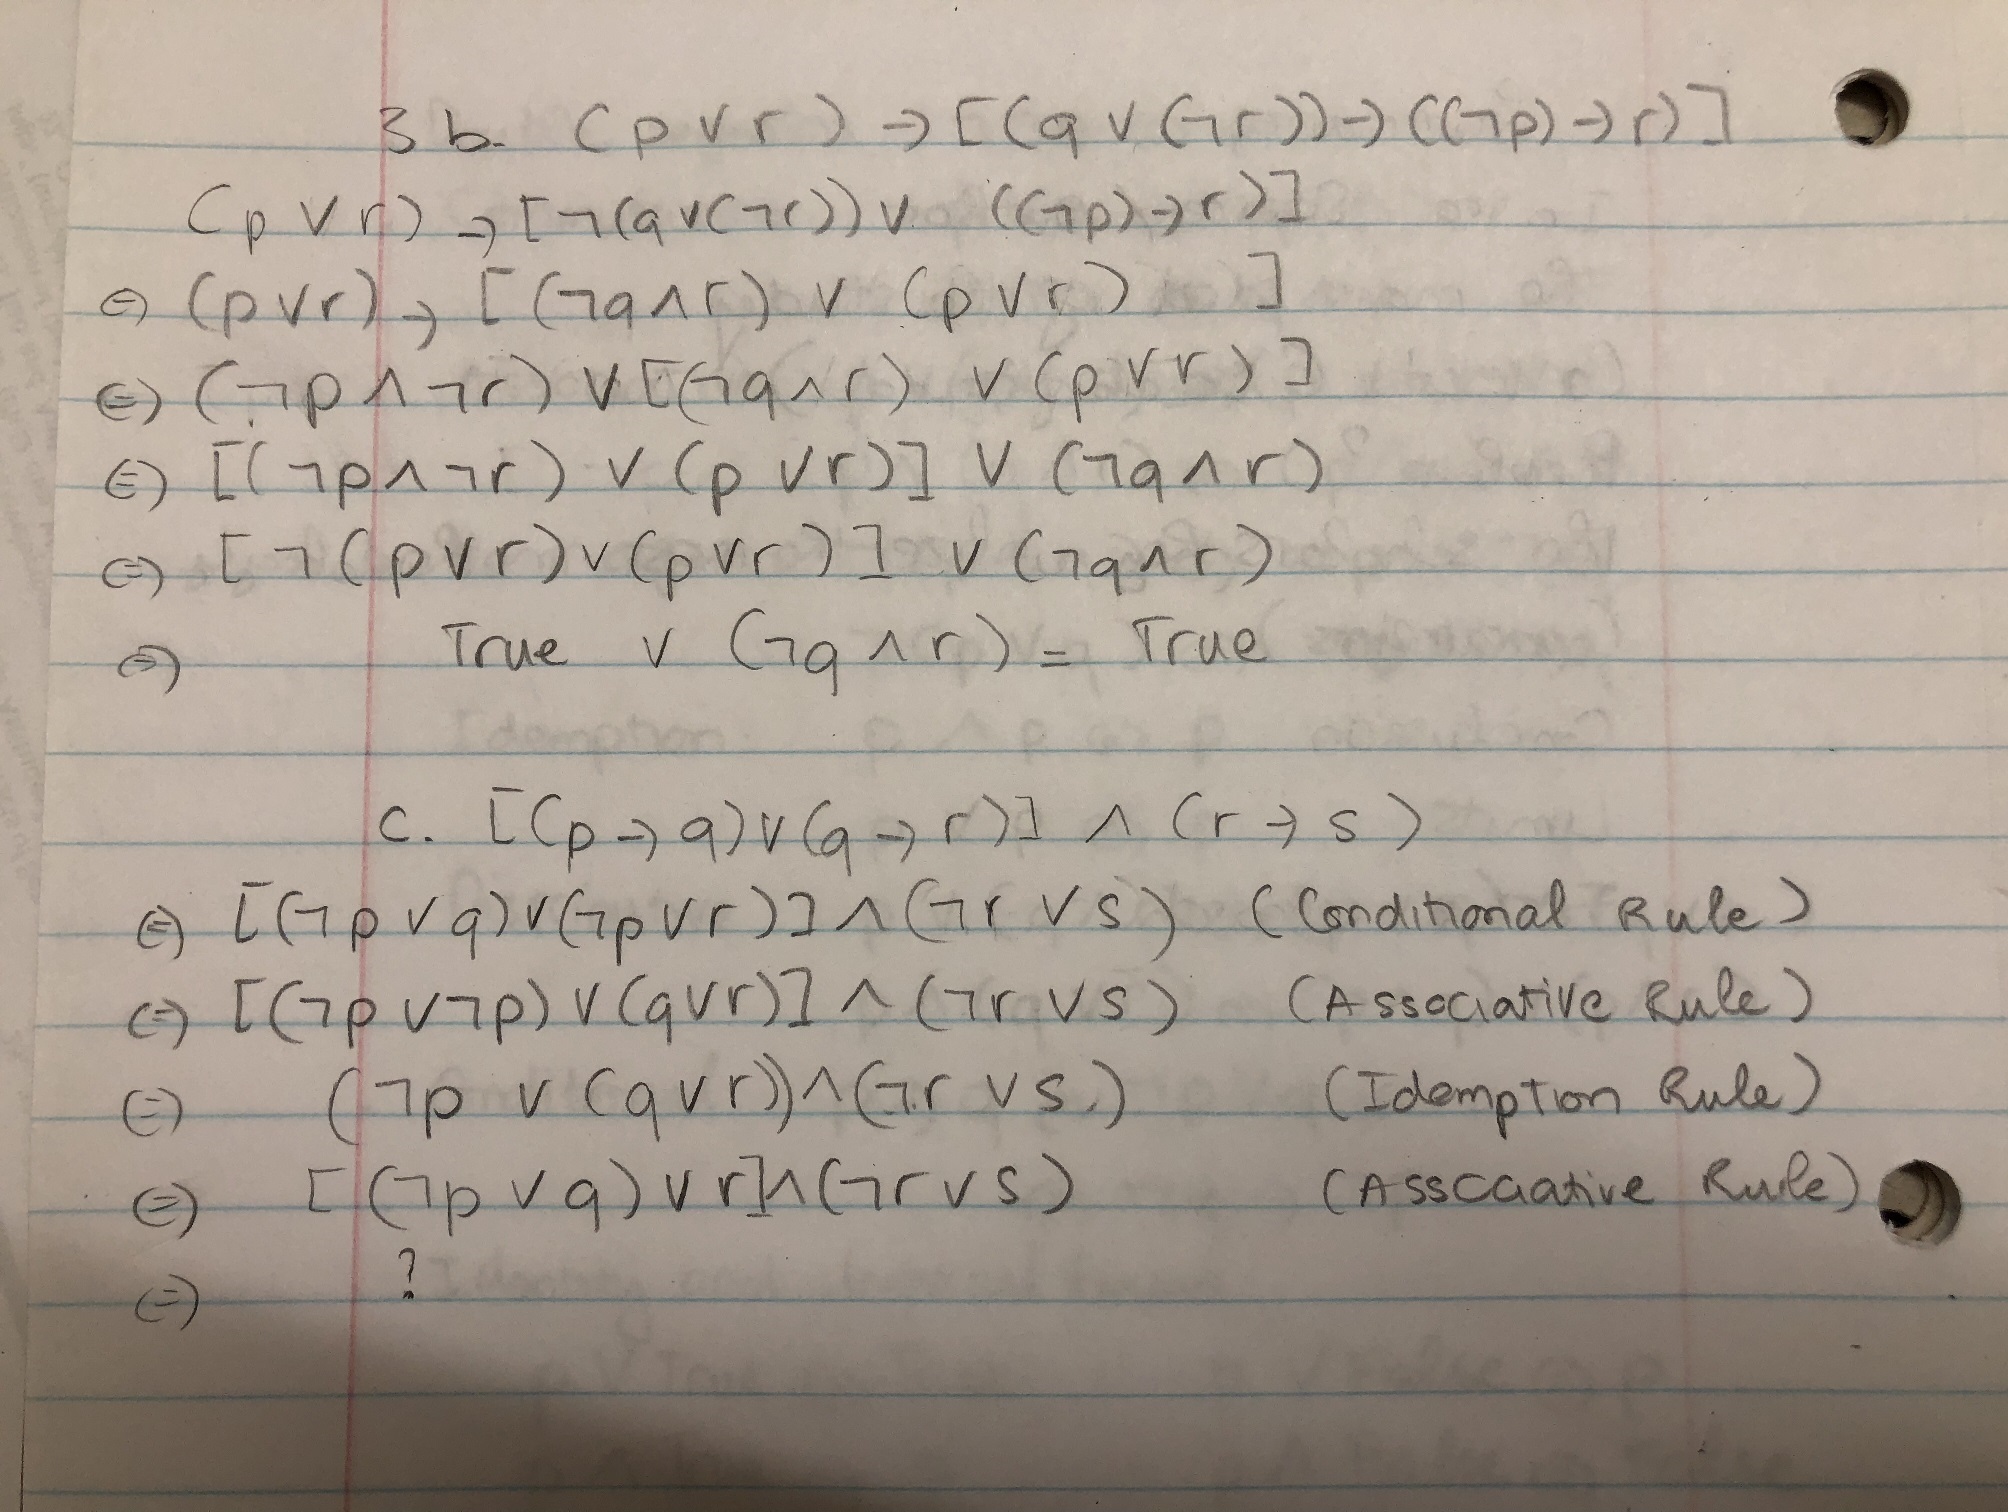 3b. (p ∨ r) → [(q ∨ (¬r)) → ((¬p) → r)]
(p ∨ r) → [¬(q ∨ (¬r)) ∨ ((¬p) → r)]
⇔ (p ∨ r) → [(¬q ∧ r) ∨ (p ∨ r) ]
⇔ (¬p ∧ ¬r) ∨ [(¬q ∧ r) ∨ (p ∨ r)]
⇔ [(¬p ∧ ¬r) ∨ (p ∨ r)] ∨ (¬q ∧ r)
⇔ [¬(p ∨ r) ∨ (p ∨ r)] ∨ (¬q ∧ r)
⇔ True ∨ (¬q ∧ r) = True
c. [(p → q) ∨ (q → r)] ∧ (r → s)
⇔ [(¬p ∨ q) ∨ (¬p ∨ r)] ∧ (¬r ∨ s) (Conditional Rule)
⇔ [(¬p ∨ ¬p) ∨ (q ∨ r)] ∧ (¬r ∨ s) (Associative Rule)
⇔ (¬p ∨ (q ∨ r)) ∧ (¬r ∨ s) (Idemption Rule)
⇔ [(¬p ∨ q) ∨ r] ∧ (¬r ∨ s) (Asscaative Rule)
⇔ ?